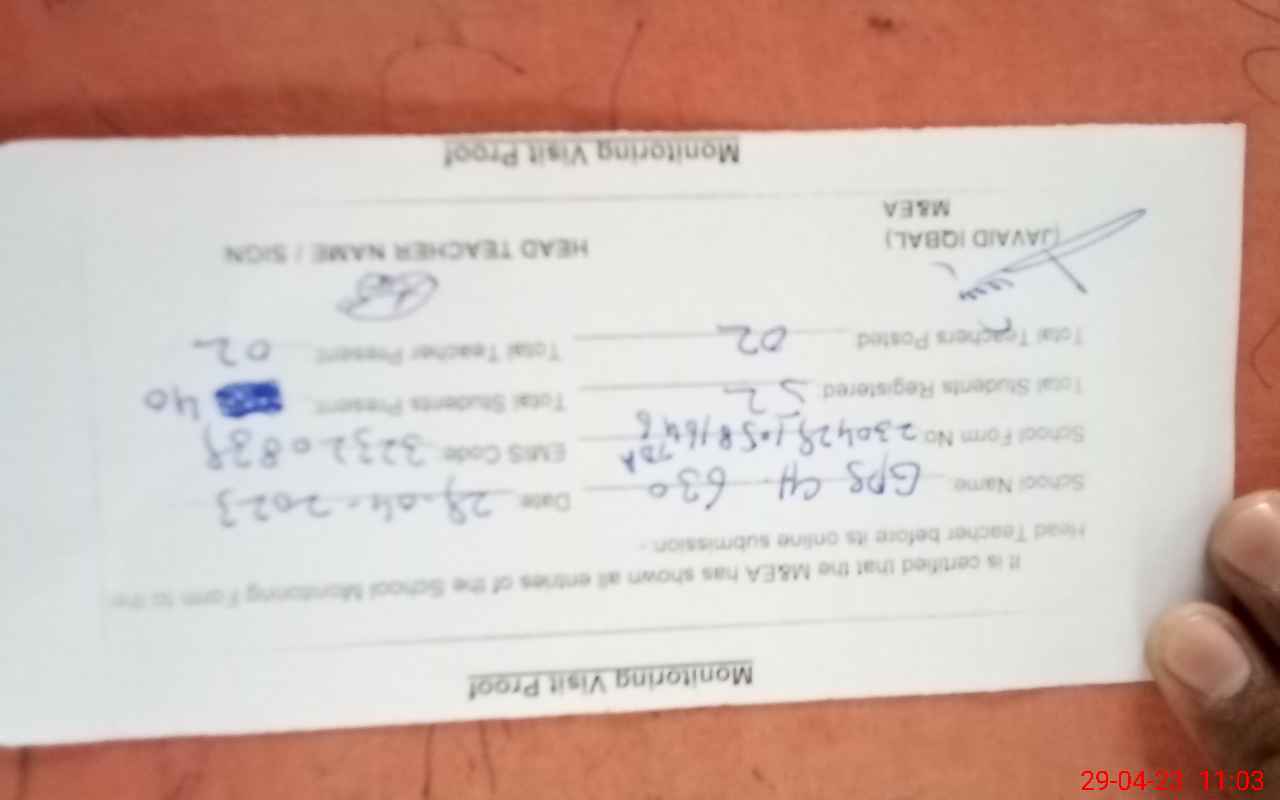 Monitoring Visit Proof
It is certified that the M&EA has shown all entries of the School Monitoring Form to the
Head Teacher before its online submission:-
School Name: GPS CH 630 Date: 29-04-2023
School Form No: EMIS Code: 32320839
Total Students Registered: 52 Total Students Present: 40
Total Teachers Posted: 02 Total Teacher Present: 02
(JAVAID IQBAL) HEAD TEACHER NAME / SIGN
M&EA
Monitoring Visit Proof
29-04-23 11:03